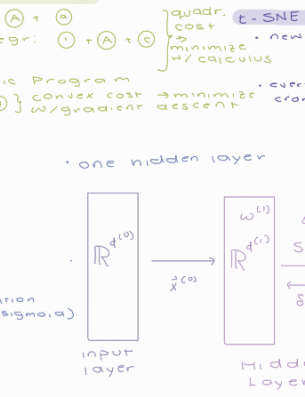 Ⓐ + ⓐ
egr: ① + Ⓐ + ⓒ
quadr.
cost
→
minimize
w/ calculus
t-SNE
• new
ic Program
} convex cost → minimize
w/gradient descent
• ever
crow
• one hidden layer
ℝ^d^(0)
x̂^(0)
ω^(1)
ℝ^d^(1)
S
δ
ation
sigmoid)
input
layer
Hidde
Layer